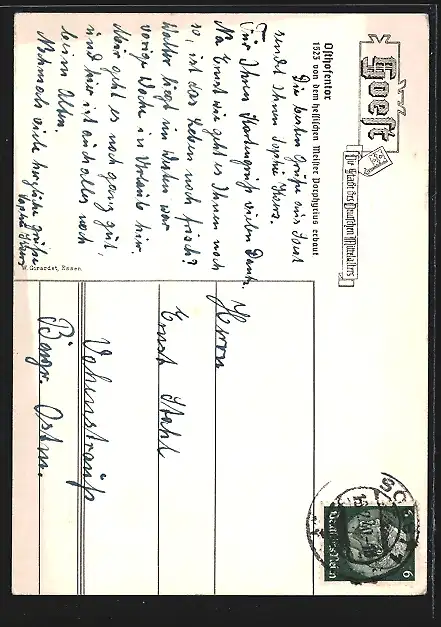 Soest
Die Stadt des Deutschen Mittelalters
Osthofentor
1523 von dem hessischen Meister Porphyrius erbaut
Die besten Grüße aus Soest
sendet Ihnen Sophie
Für Ihren Kartengruß vielen Dank.
Na Ernst wie geht es Ihnen noch
so, ist das Leben noch frisch?
Walter liegt im Westen war
vorige Woche in Urlaub hier.
Mir geht es noch ganz gut,
und hier ist auch alles noch
beim Alten.
Nochmals viele herzliche Grüße
Sophie
W. Girardet, Essen.
Herrn
Ernst Stahl
Vohenstrauß
Bayr. Ostm.
SOEST
Deutsches Reich
6